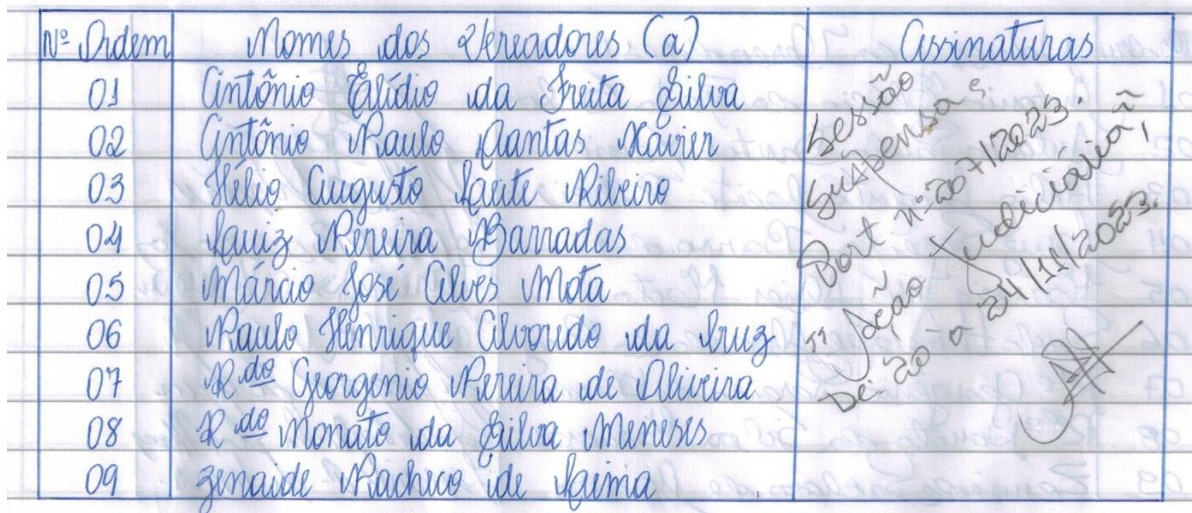 Nº Ordem Nomes dos Vereadores (a) Assinaturas
01 Antônio Elídio da Freita Silva
02 Antônio Paulo Dantas Xavier
03 Hélio Augusto Leite Ribeiro
04 Luiz Pereira Barradas
05 Márcio José Alves Mota
06 Paulo Henrique Alvoredo da Cruz
07 Rdo Georgenio Pereira de Oliveira
08 Rdo Nonato da Silva Meneses
09 Zenaide Pacheco de Lima
Sessão
Suspensa
Port nº 207/2023.
" Ação Judiciária"
De: 20 a 24/11/2023.